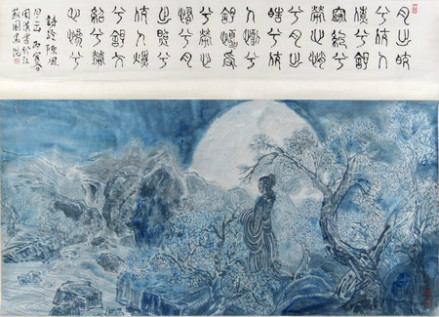 月出皎
兮佼人
僚兮舒
窈糾兮
勞心悄
兮月出
皓兮佼
人懰兮
舒懮受
兮勞心
慅兮月
出照兮
佼人燎
兮舒夭
紹兮勞
心慘兮
詩經陳風
月出 丙寅